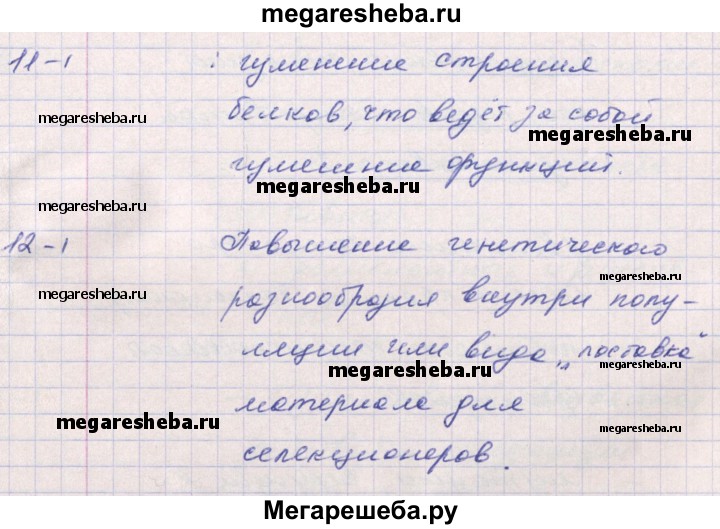 megaresheba.ru
11-1 : изменение строения
megaresheba.ru белков, что ведёт за собой
megaresheba.ru
изменение функций.
megaresheba.ru
megaresheba.ru
12-1 Повышение генетического
megaresheba.ru
megaresheba.ru разнообразия внутри попу-
ляции или вида, „поставка“
megaresheba.ru
материала для
megaresheba.ru
megaresheba.ru
селекционеров.
Мегарешеба.ру